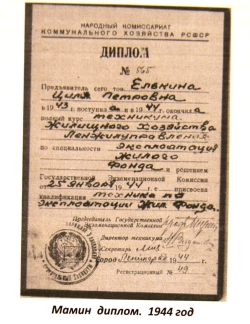 НАРОДНЫЙ КОМИССАРИАТ
КОММУНАЛЬНОГО ХОЗЯЙСТВА РСФСР
ДИПЛОМ
№ 565
Предъявитель сего тов. Елькина
Циля Петровна
в 1943 г. поступил а в 1944 окончил а
полный курс техникума
Жилищного Хозяйства
Ленжилуправления
по специальности Эксплоатация
Жилого
Фонда и решением
Государственной Экзаменационной Комиссии от
25 января 1944 г. присвоена
квалификация техника по
эксплоатации Жил. Фонда.
Председатель Государственной
Экзаменационной Комиссии
Директор техникума
Секретарь
Город Ленинград 1944 г.
Регистрационный № 49
Мамин диплом. 1944 год